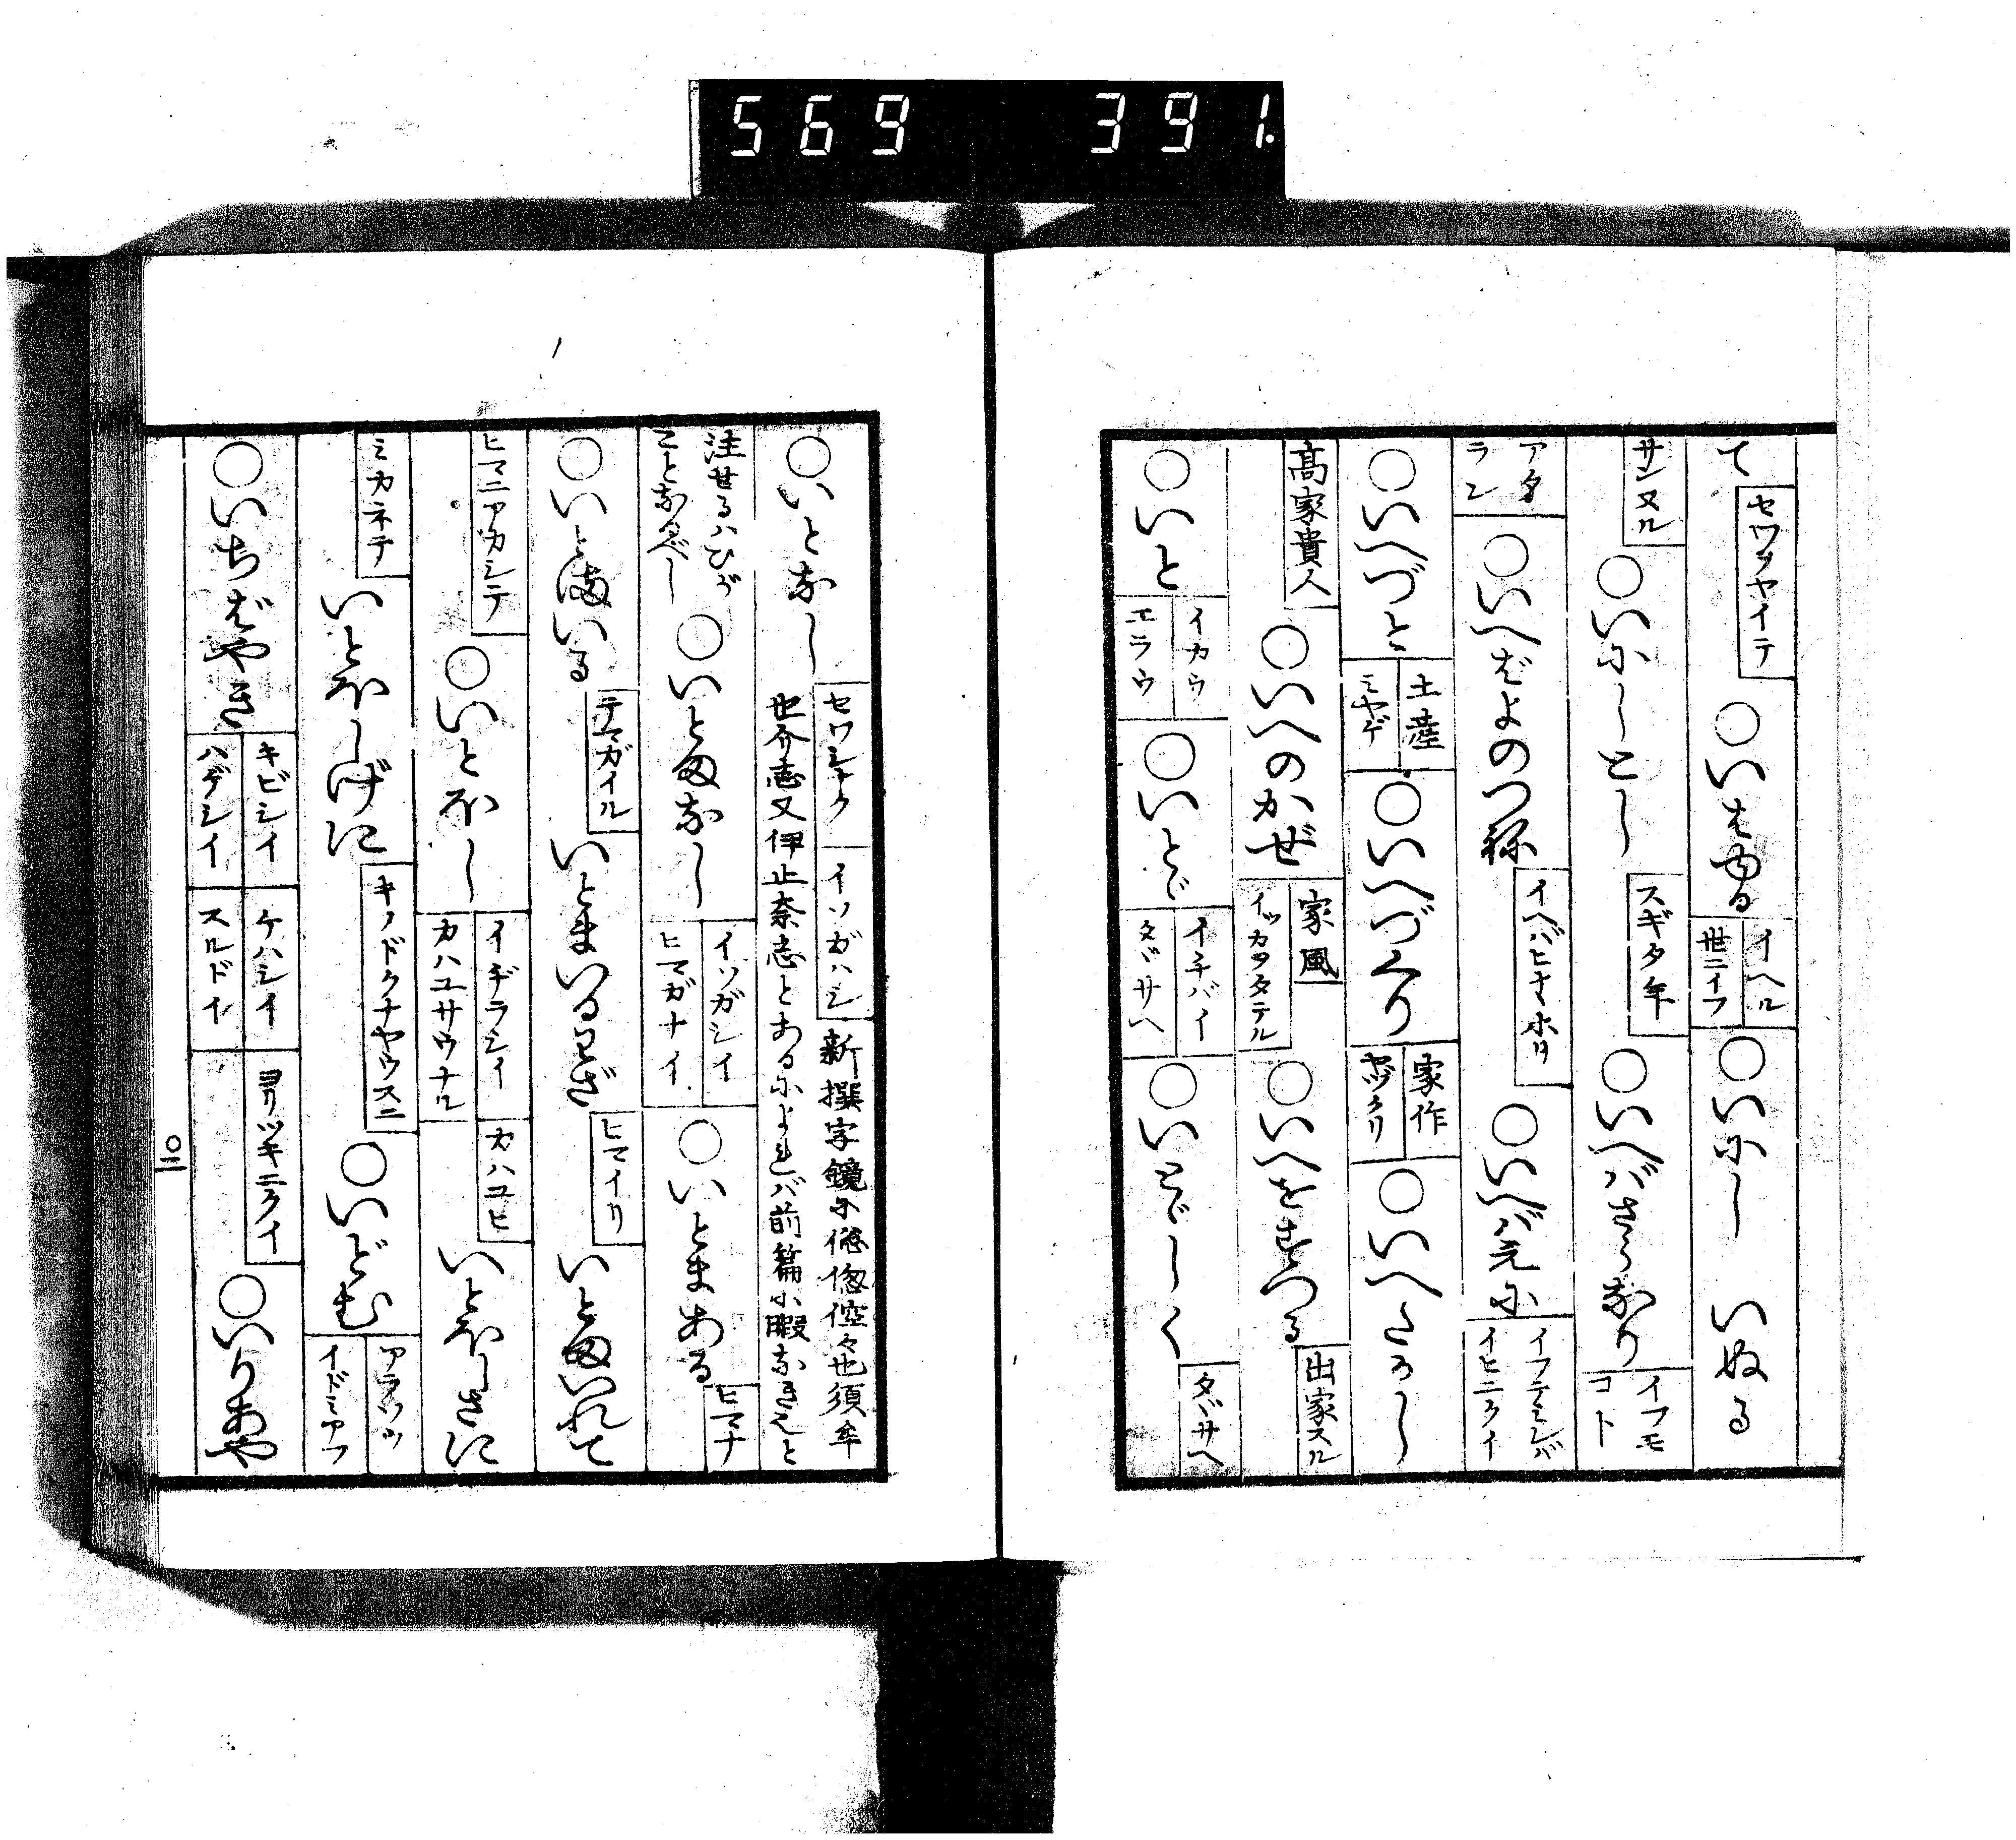 569 391.
て セワヲヤイテ ○いはゆる イヘル 世ニイフ ○いにし いぬる
サンヌル ○いにしとし スギタ年 ○いへバさらなり イフモ コト
アタ ラン ○いへばよのつね イヘバヒナナホリ ○いへバえに イフテミレバ イヒニクイ
○いへづと 土産 ミヤゲ ○いへづくり 家作 ヤツクリ ○いへたかし
高家貴人 ○いへのかぜ 家風 イツカヲタテル ○いへをすつる 出家スル
○いと イカウ エラウ ○いとど イチバイ タヾサヘ ○いとどしく タヾサヘ
○いとなし セワシナク イソガハシ 新撰字鏡に偬倊々也須牟
也介志又伊止奈志とあるによれバ前篇に暇なきこと
注せるハひが
ことなるべし ○いとまなし イソガシイ ヒマガナイ ○いとまある ヒマナ
○いとまいる テマガイル いとまいるわざ ヒマイリ いとまいれて
ヒマニアカシテ ○いとほし イヂラシイ カハユサウナル カハユヒ いとほしさに
ミカネテ いとほしげに キノドクナヤウスニ ○いどむ アラソウ イドミアフ
○いちばやき キビシイ ハゲシイ ケハシイ スルドイ ヨリツキニクイ ○いりあや